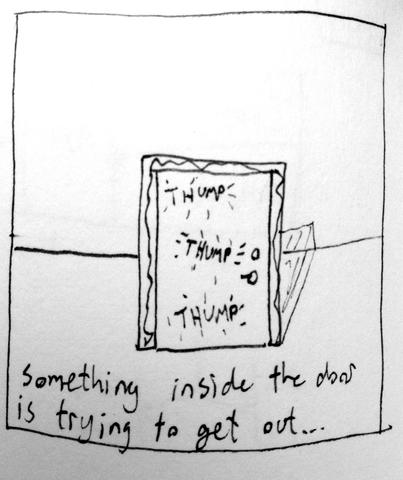 THUMP
THUMP
THUMP
something inside the door
is trying to get out...